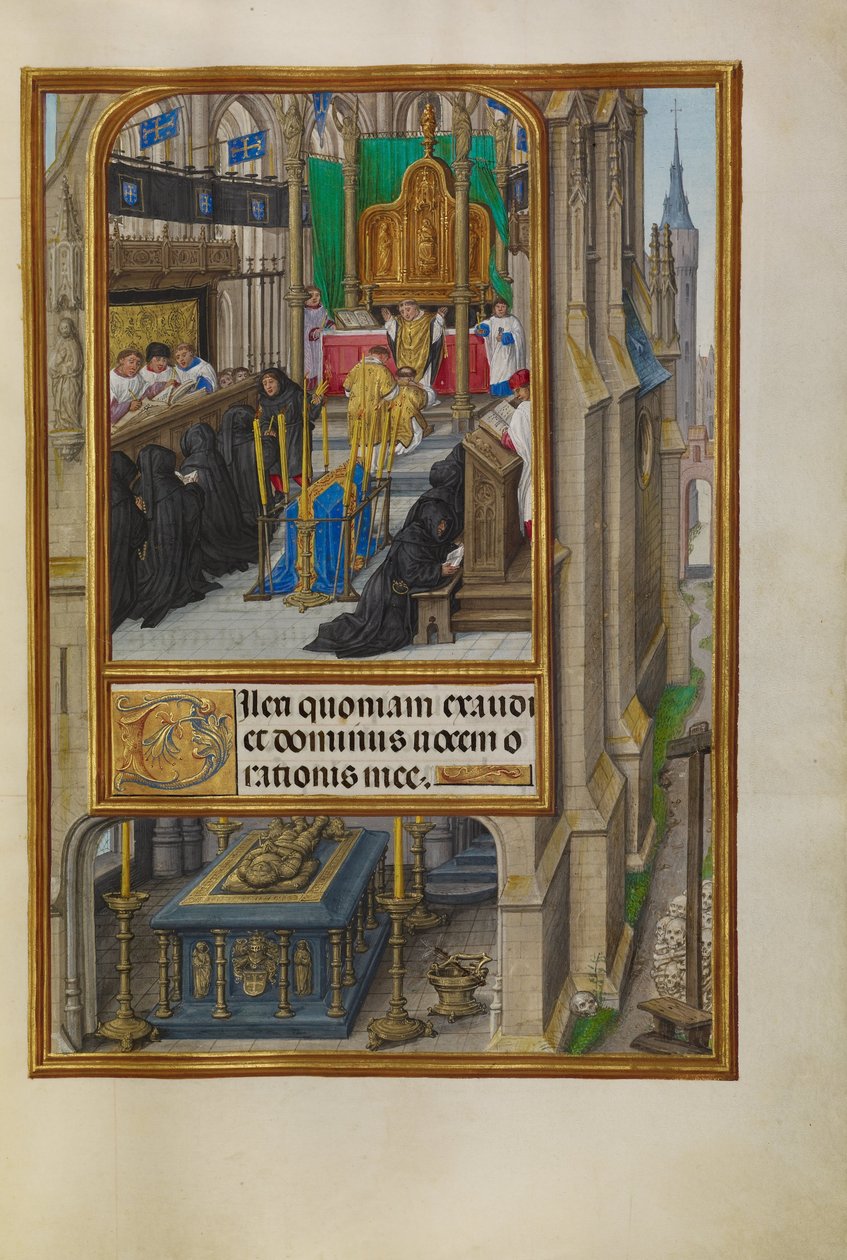 DIlexi quoniam exaudi
et dominus uocem o
rationis mee.